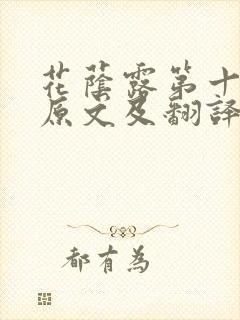 花蔭露第十
原文及翻譯
都有為